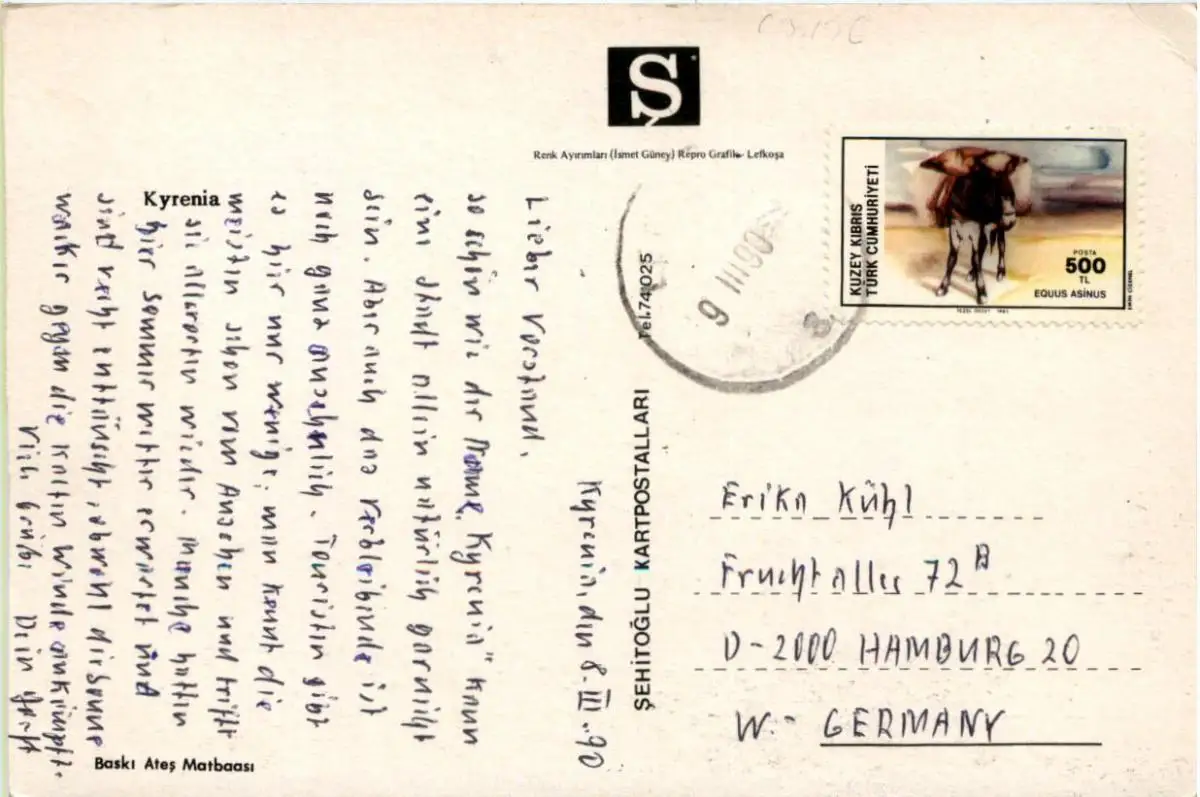 Ş
Renk Ayırımları (İsmet Güney) Repro Grafik - Lefkoşa
KUZEY KIBRIS
TÜRK CUMHURİYETİ
POSTA
500
TL
EQUUS ASINUS
9 III 90
Tel. 74 025
ŞEHİTOĞLU KARTPOSTALLARI
Kyrenia
Kyrenia, den 8.III.90
Lieber Vorstand,
so schön wie der Name „Kyrenia" kann
eine Stadt allein natürlich garnicht
sein. Aber auch das Verbleibende ist
noch ganz ansehnlich. Touristen gibt
es hier nur wenige; man kennt die
meisten schon vom Ansehen und trifft
sie allerorten wieder. Manche hatten
hier Sommerwetter erwartet und
sind recht enttäuscht, obwohl die Sonne
wacker gegen die kalten Winde ankämpft.
Viele Grüße Dein
Erika Kühl
Fruchtallee 72 B
D-2000 HAMBURG 20
W.- GERMANY
Baskı Ateş Matbaası